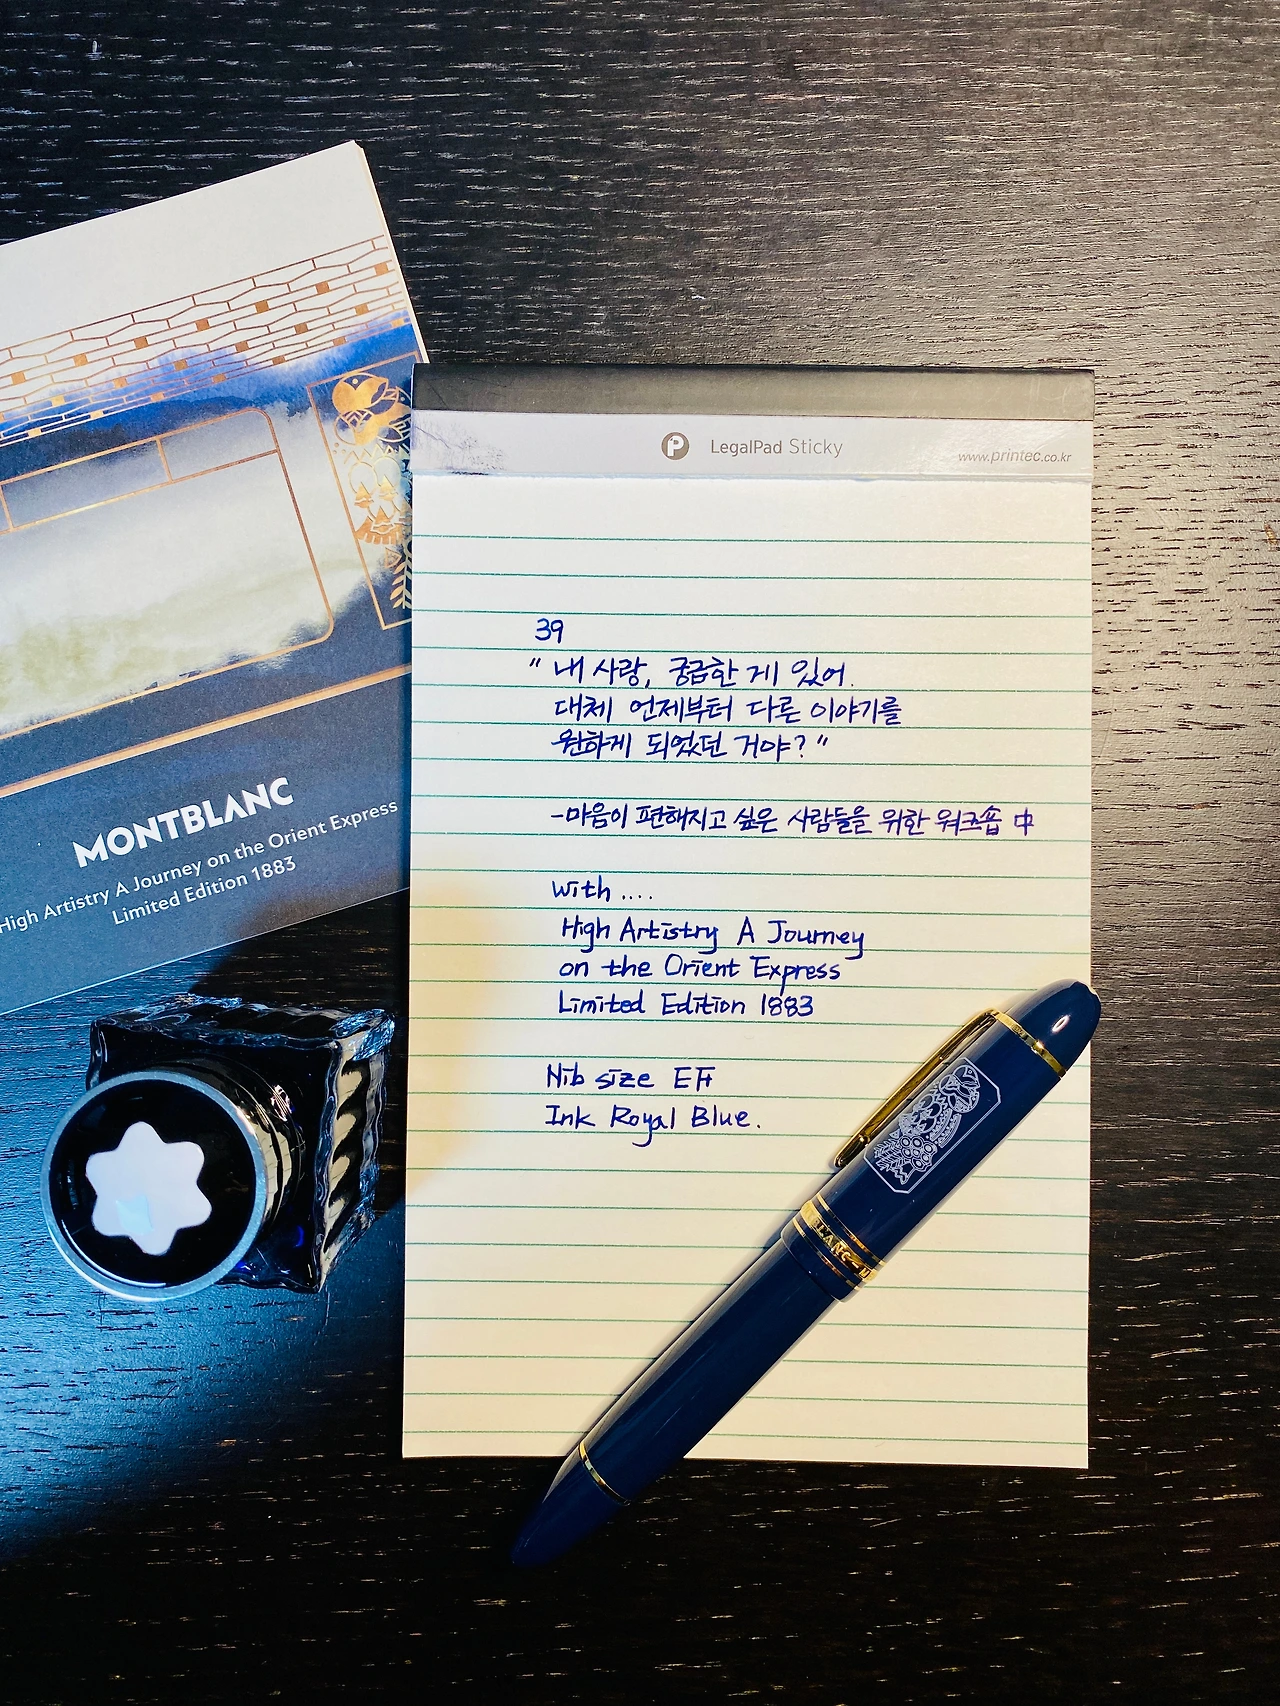 MONTBLANC
High Artistry A Journey on the Orient Express
Limited Edition 1883
P LegalPad Sticky
www.printec.co.kr
39
"내 사랑, 궁금한 게 있어.
대체 언제부터 다른 이야기를
원하게 되었던 거야?"
-마음이 편해지고 싶은 사람들을 위한 워크숍 中
with ....
High Artistry A Journey
on the Orient Express
Limited Edition 1883
Nib size EF
Ink Royal Blue.
BLANC-M